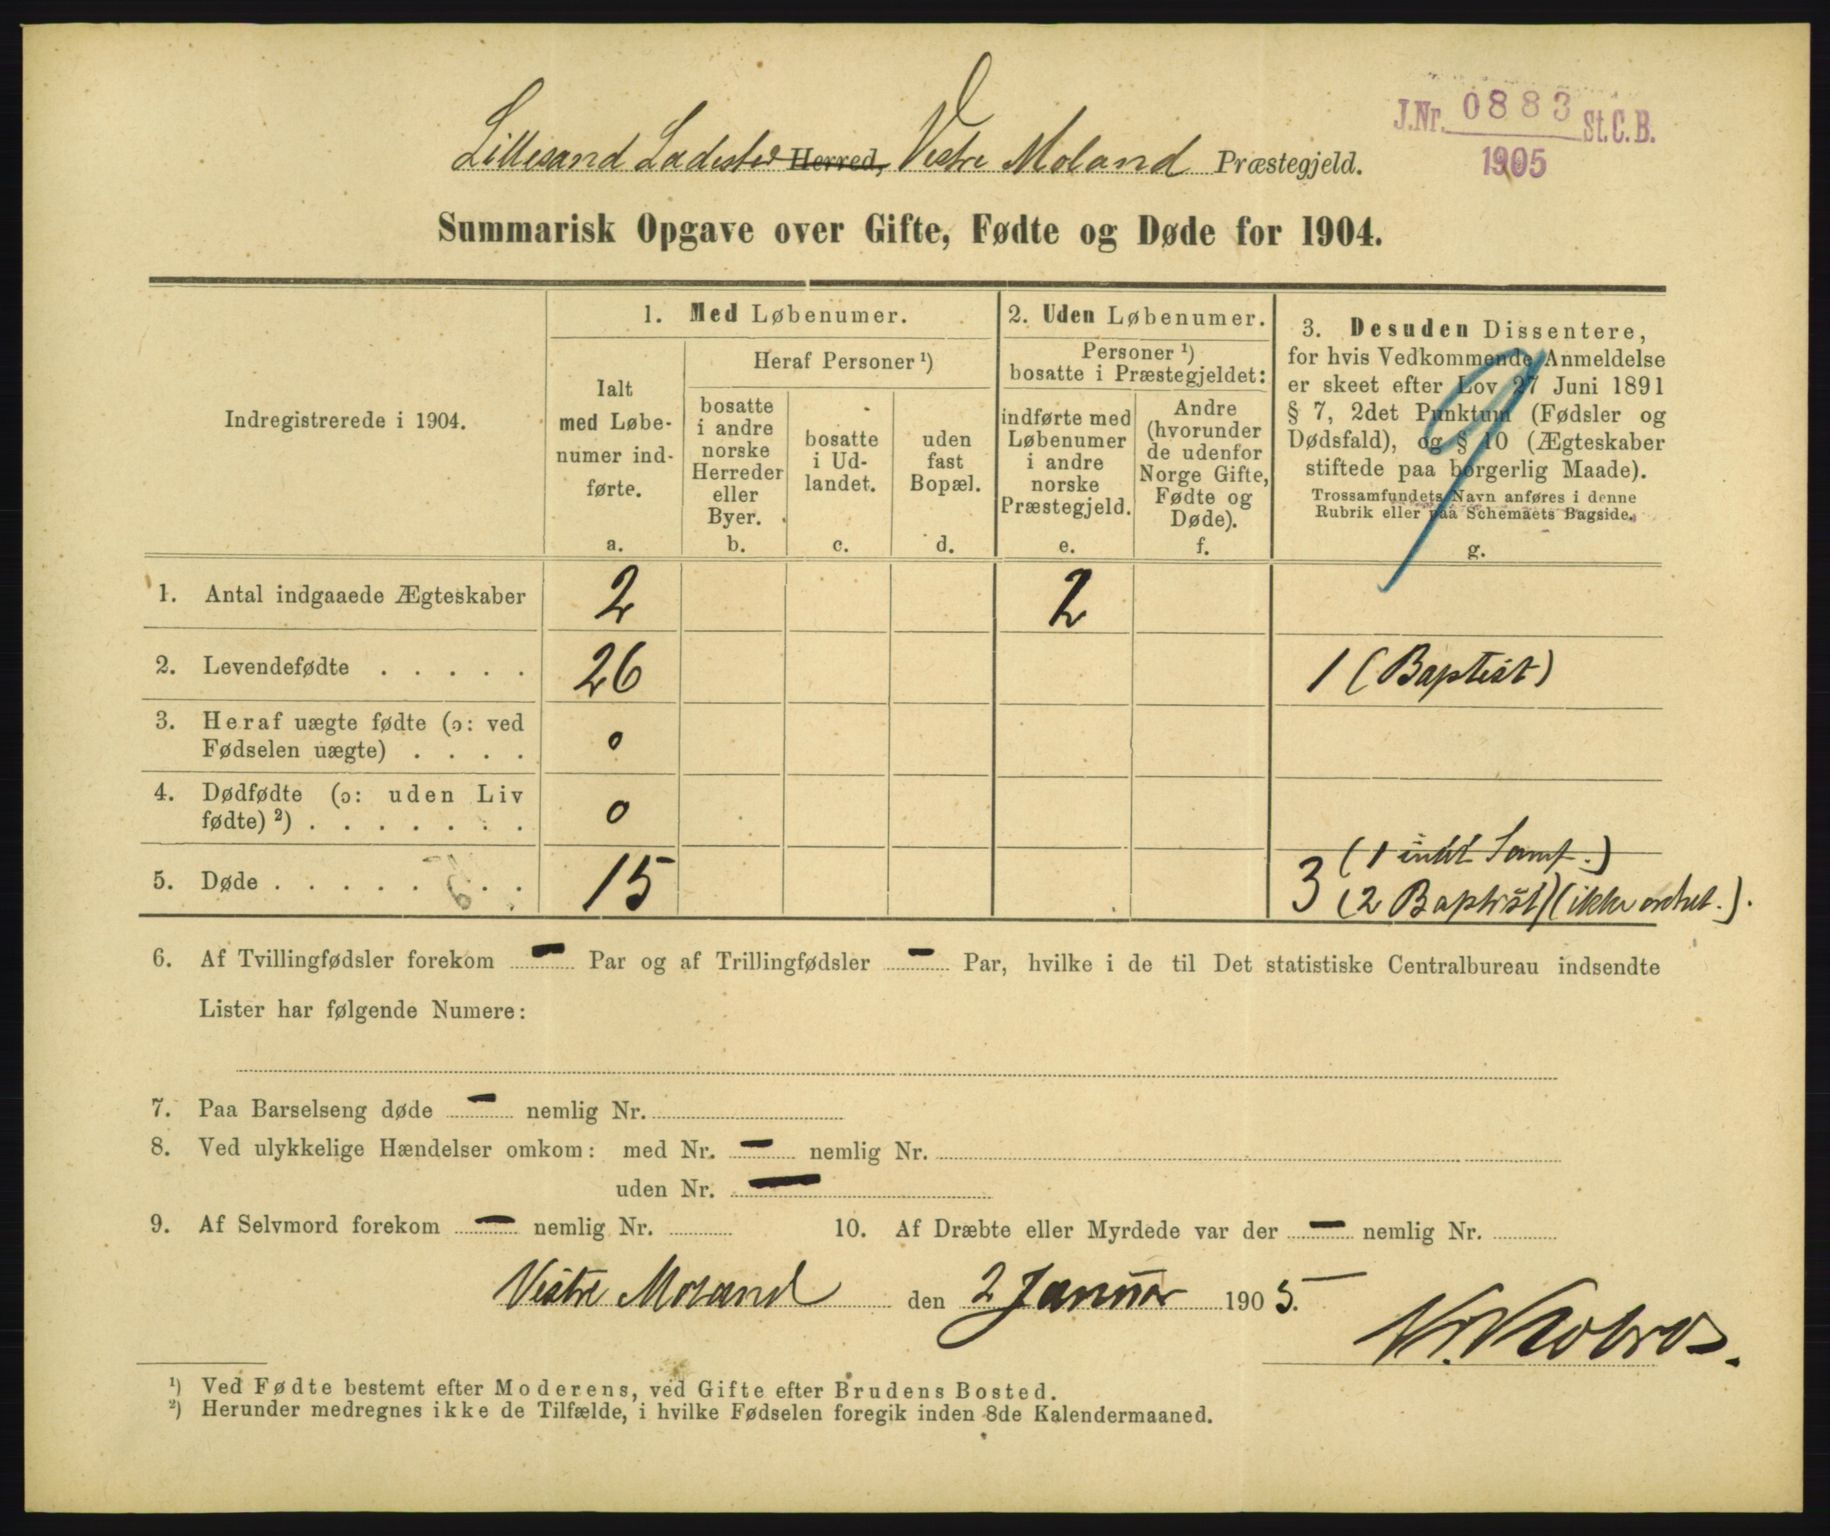 J.Nr. 0883 St.C.B.
1905
Lillesand Ladested Herred, Vestre Moland Præstegjeld.
Summarisk Opgave over Gifte, Fødte og Døde for 1904.
Indregistrerede i 1904.
1. Med Løbenumer.
Ialt
med Løbe-
numer ind-
førte.
a.
Heraf Personer ¹)
bosatte
i andre
norske
Herreder
eller
Byer.
b.
bosatte
i Ud-
landet.
c.
uden
fast
Bopæl.
d.
2. Uden Løbenumer.
Personer ¹)
bosatte i Præstegjeldet:
indførte med
Løbenumer
i andre
norske
Præstegjeld.
e.
Andre
(hvorunder
de udenfor
Norge Gifte,
Fødte og
Døde).
f.
3. Desuden Dissentere,
for hvis Vedkommende Anmeldelse
er skeet efter Lov 27 Juni 1891
§ 7, 2det Punktum (Fødsler og
Dødsfald), og § 10 (Ægteskaber
stiftede paa borgerlig Maade).
Trossamfundets Navn anføres i denne
Rubrik eller paa Schemaets Bagside.
g.
1. Antal indgaaede Ægteskaber 2 2
2. Levendefødte . . . . . 26 1 (Baptist)
3. Heraf uægte fødte (ɔ: ved
Fødselen uægte) . . . . 0
4. Dødfødte (ɔ: uden Liv
fødte) ²) . . . . . . . 0
(1 Samf.)
5. Døde . . . . . . . 15 3 (2 Baptist) (ikke .).
6. Af Tvillingfødsler forekom — Par og af Trillingfødsler — Par, hvilke i de til Det statistiske Centralbureau indsendte
Lister har følgende Numere:
7. Paa Barselseng døde — nemlig Nr.
8. Ved ulykkelige Hændelser omkom: med Nr. — nemlig Nr.
uden Nr. —
9. Af Selvmord forekom — nemlig Nr. 10. Af Dræbte eller Myrdede var der — nemlig Nr.
Vestre Moland den 2 Januar 1905.
¹) Ved Fødte bestemt efter Moderens, ved Gifte efter Brudens Bosted.
²) Herunder medregnes ikke de Tilfælde, i hvilke Fødselen foregik inden 8de Kalendermaaned.